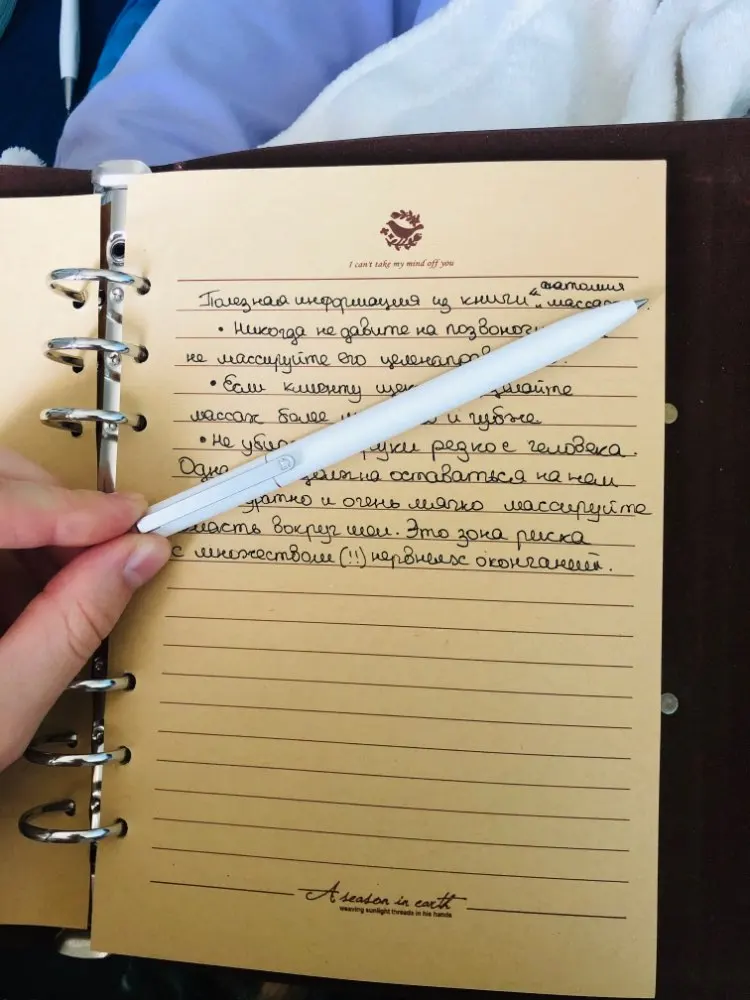 I can't take my mind off you
Полезная информация из книги "анатомия
массаж
• Никогда не давите на
не массируйте его
• Если клиенту
массаж более и глубже
• Не руки редко с человека.
Одна оставаться на нем
и очень мягко массируйте
вокруг шеи. Это зона риска
с множеством (!!) нервных окончаний.
A season in earth
weaving sunlight threads in his hands